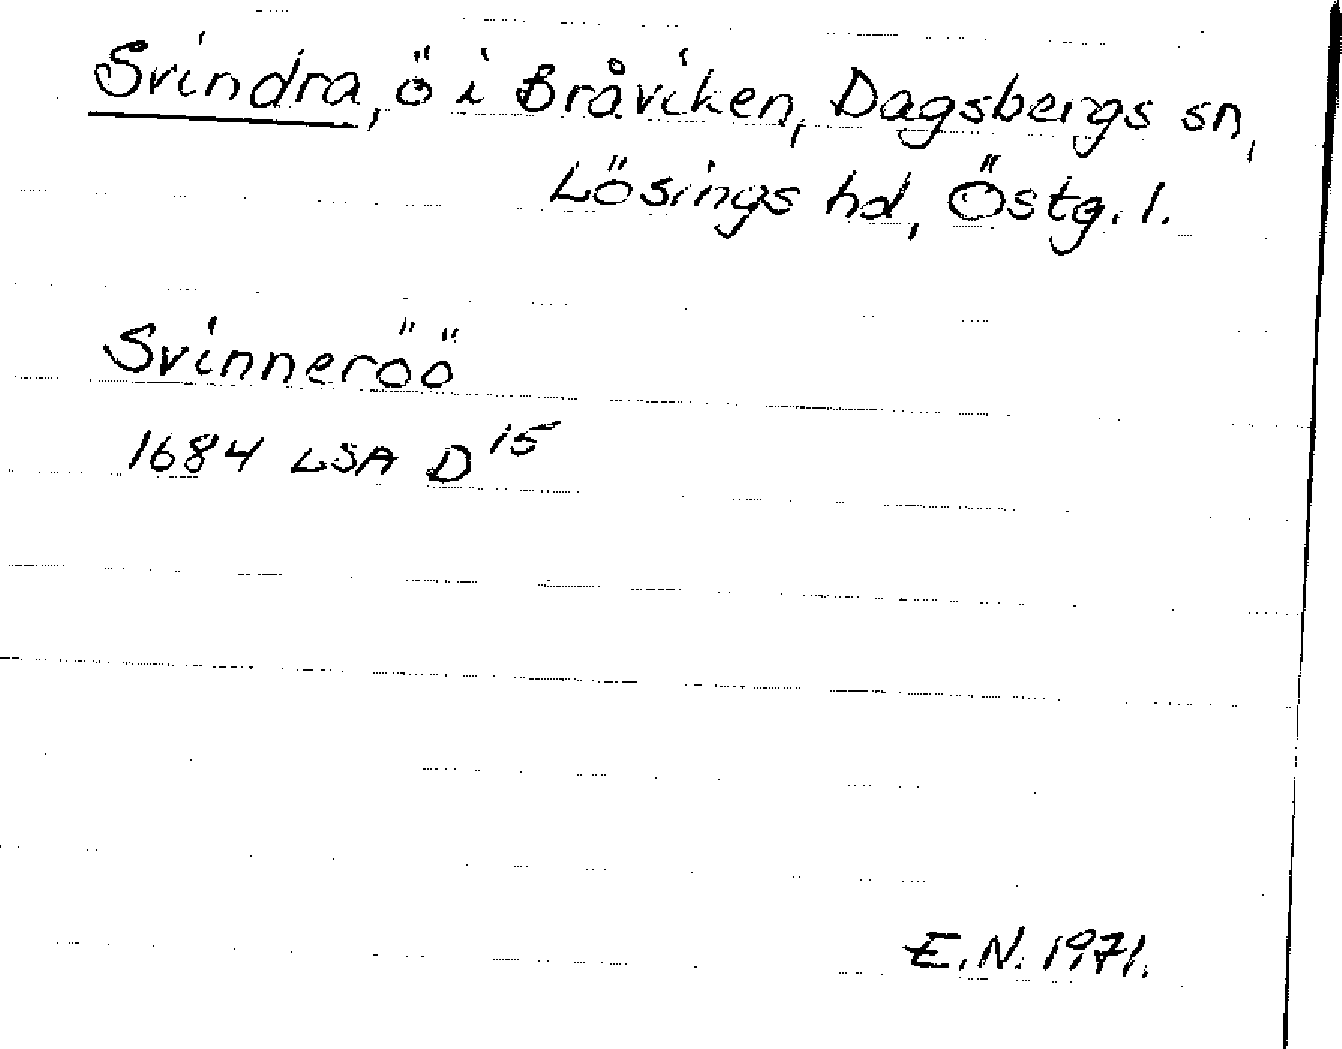 Svindra, ö i Bråviken, Dagsbergs sn,
Lösings hd, Östg. l.
Svinneröö
1684 LSA D 15
E.N. 1971.